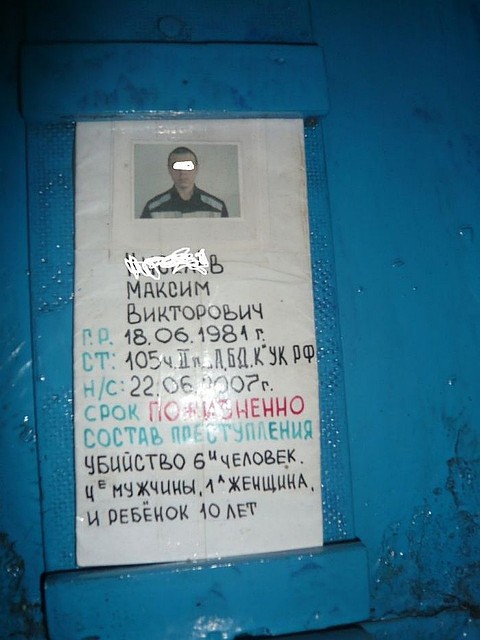 МАКСИМ
ВИКТОРОВИЧ
Г.Р. 18.06.1981 г.
СТ: 105 ч.II п. „А,Б,Д,К" УК РФ
Н/С: 22.06.2007г.
СРОК ПОЖИЗНЕННО
СОСТАВ ПРЕСТУПЛЕНИЯ
УБИЙСТВО 6И ЧЕЛОВЕК.
4Е МУЖЧИНЫ, 1А ЖЕНЩИНА,
И РЕБЁНОК 10 ЛЕТ